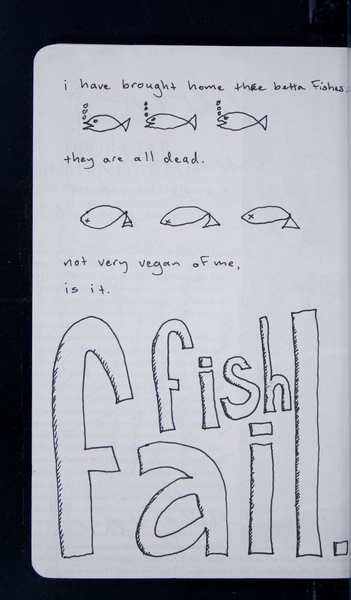 i have brought home three betta fishes.
they are all dead.
not very vegan of me,
is it.
fish
fail.